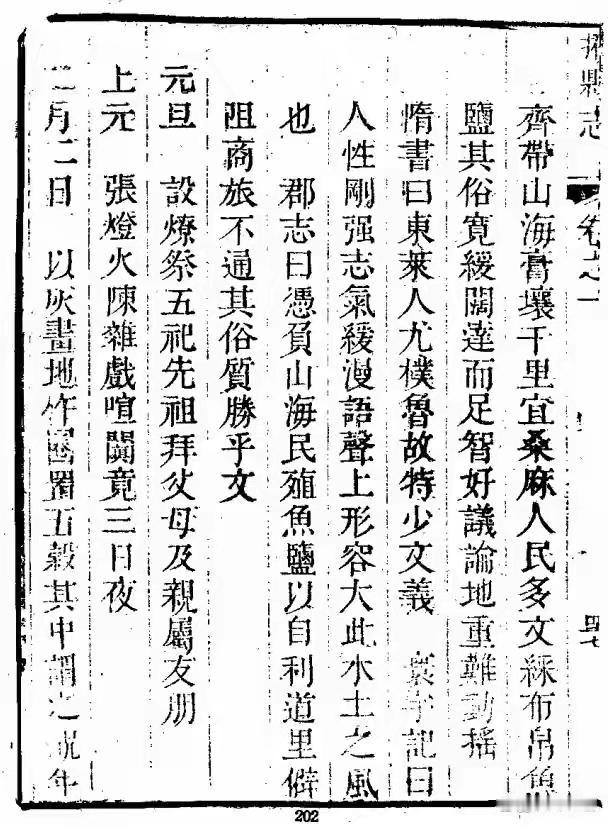 掖縣志 卷之一
齊帶山海膏壤千里宜桑麻人民多文綵布帛魚
鹽其俗寛緩闊達而足智好議論地重難動揺
隋書曰東萊人尤樸魯故特少文義 寰宇記曰
人性剛强志氣緩漫語聲上形容大此水土之風
也 郡志曰憑負山海民殖魚鹽以自利道里僻
阻商旅不通其俗質勝乎文
元旦 設燎祭五祀先祖拜父母及親屬友朋
上元 張燈火陳雜戲喧闐竟三日夜
二月二日 以灰畫地作囷置五穀其中謂之
202